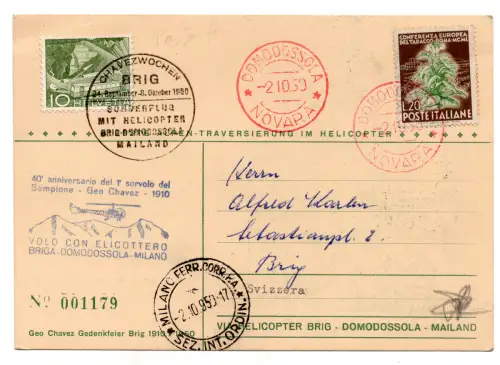 10 HELVETIA
CHAVEZWOCHEN
BRIG
24. September-8. Oktober 1950
SONDERFLUG
MIT HELICOPTER
BRIG-DOMODOSSOLA
MAILAND
DOMODOSSOLA
-2.10.50
NOVARA
CONFERENZA EUROPEA
DEL TABACCO-ROMA-MCML
L.20
POSTE ITALIANE
DOMODOSSOLA
-2.10.50
NOVARA
-TRAVERSIERUNG IM HELICOPTER
40° anniversario del 1° sorvolo del
Sempione - Geo Chavez - 1910
VOLO CON ELICOTTERO
BRIGA-DOMODOSSOLA-MILANO
Herrn
Alfred Karlen
Sebastianspl. 2
Brig
Svizzera
No 001179
MILANO FERR. CORR. P.A.
-2.10.950-17
SEZ. INT. ORDIN.
Geo Chavez Gedenkfeier Brig 1910-1950
VIA HELICOPTER BRIG - DOMODOSSOLA - MAILAND